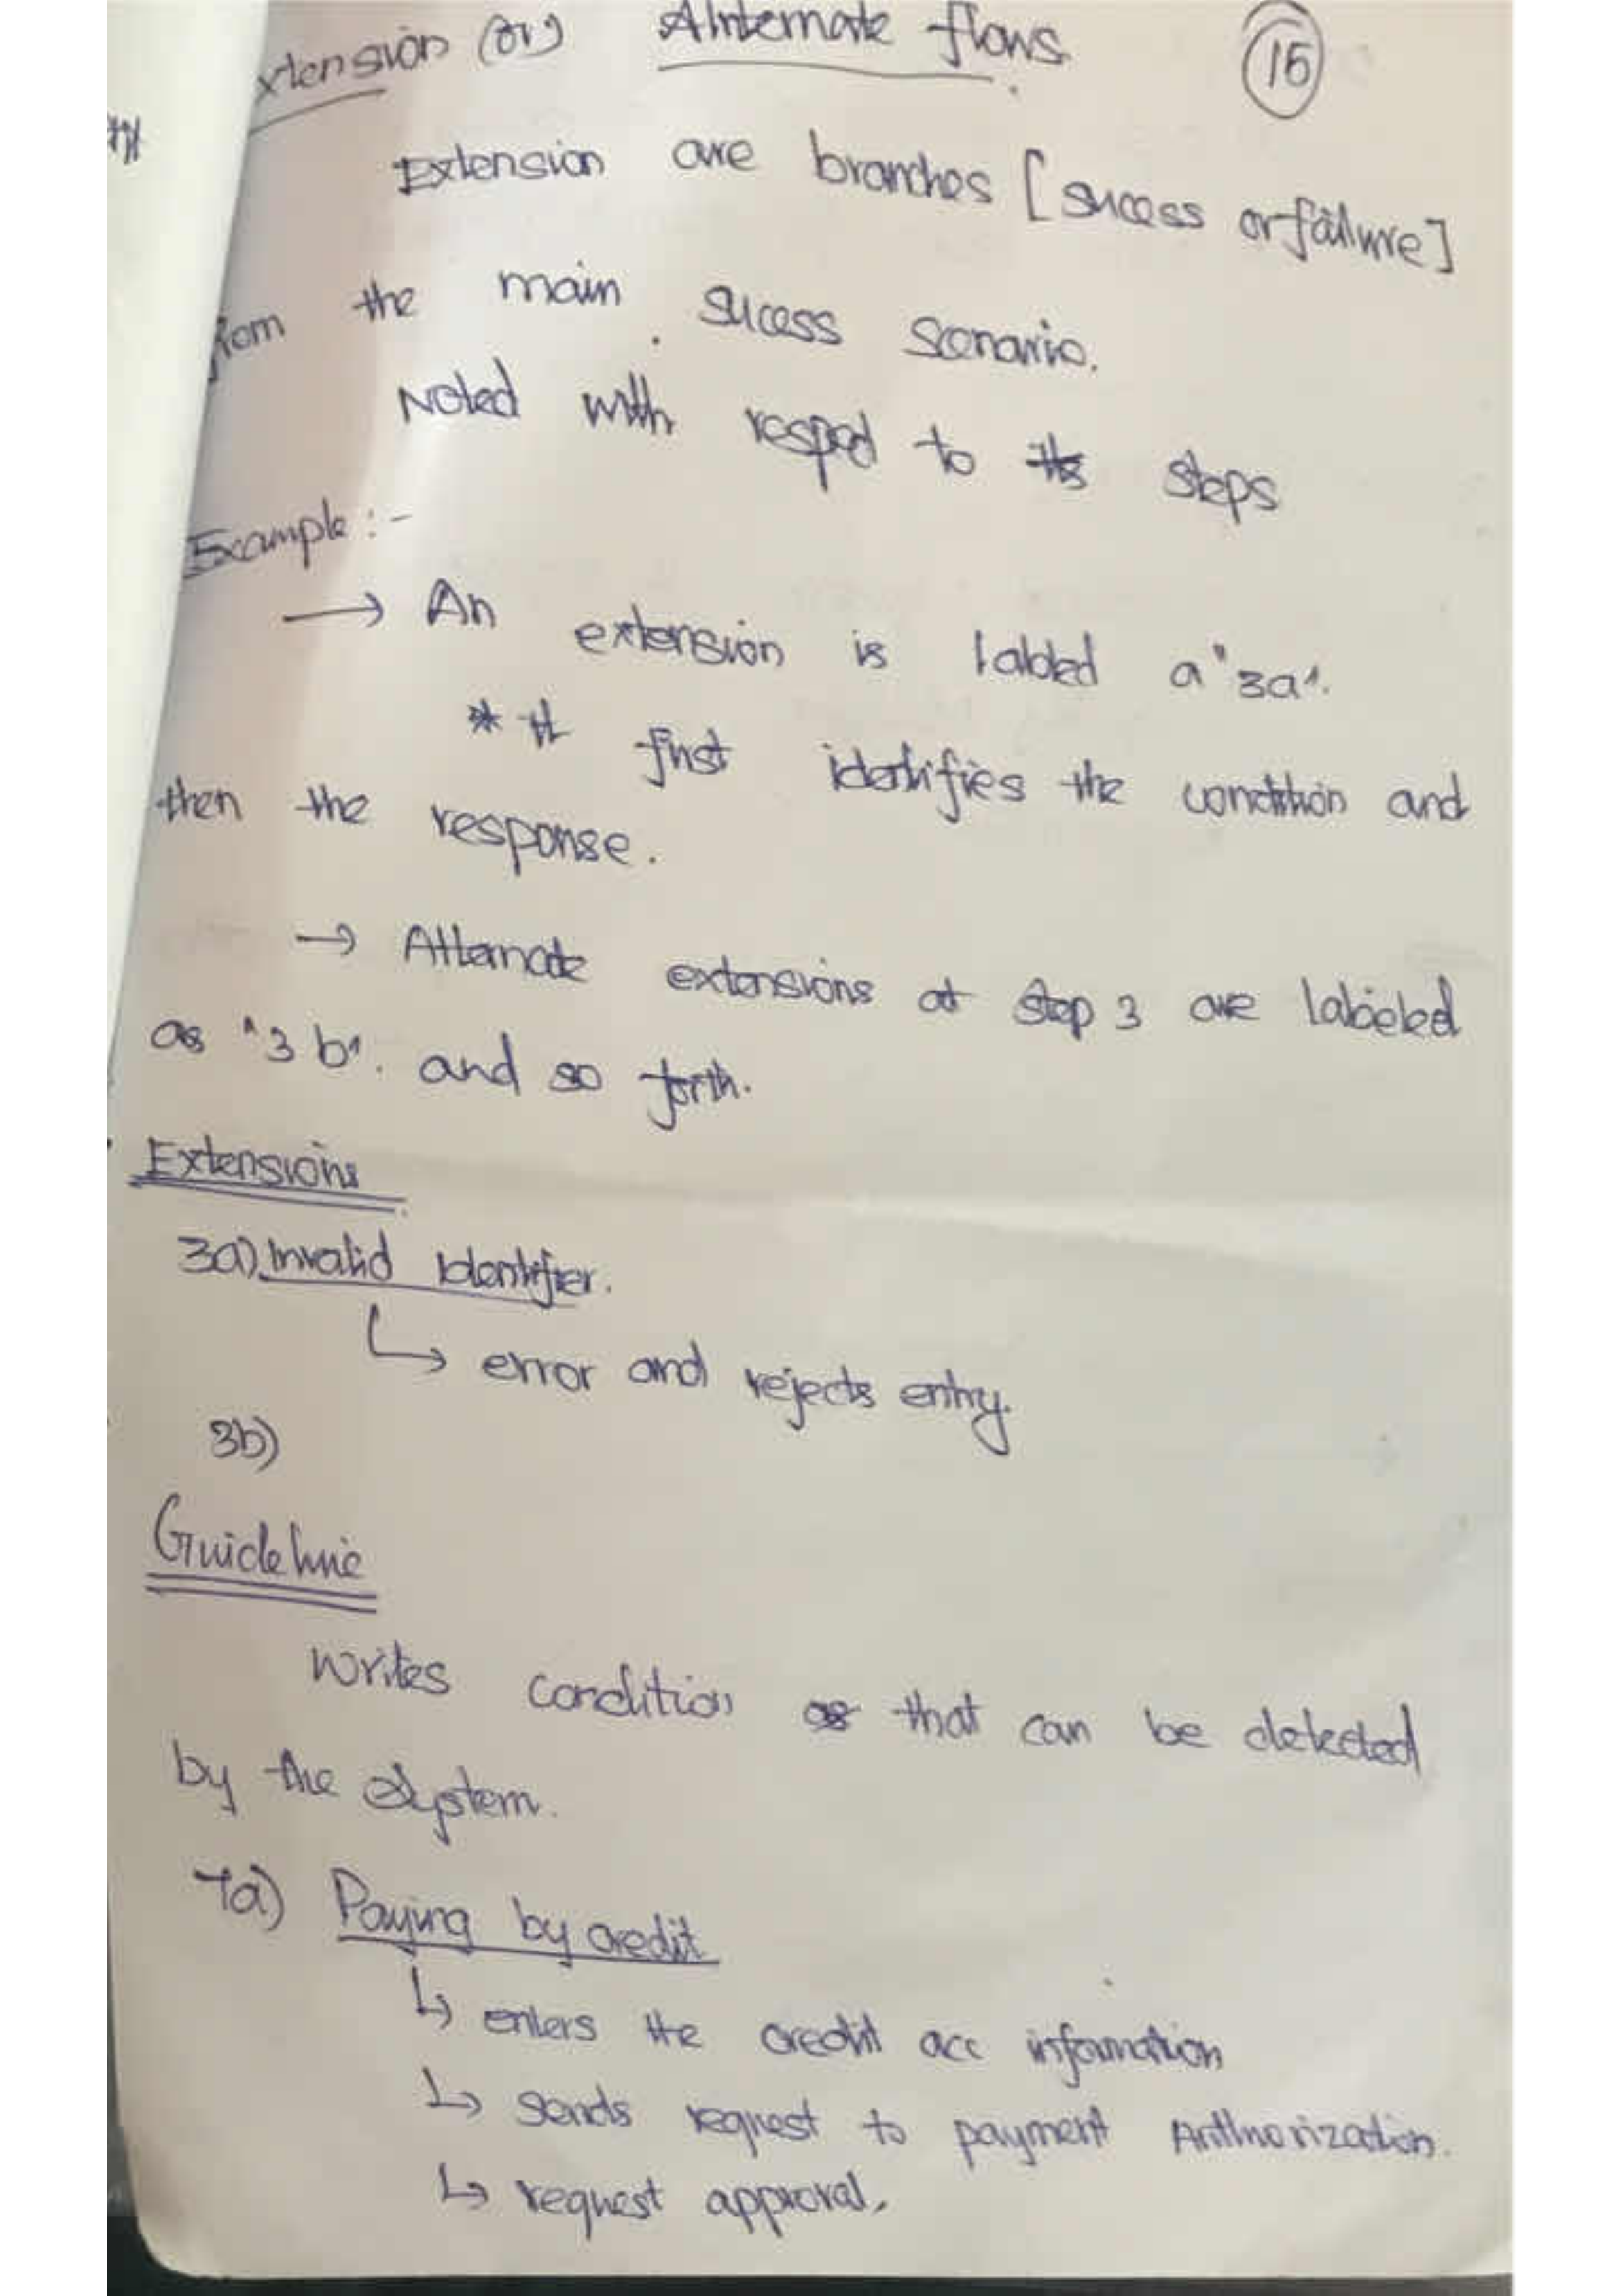 xtension (or) Alnternate flows. 15
Extension are branches [sucess or failure]
from the main sucess scenario.
Noted with respect to its steps
Example :-
→ An extension is labled a "3a".
* It first identifies the condition and
then the response.
→ Alternate extensions at step 3 are labeled
as "3b". and so forth.
Extensions
3a) Invalid Identifier.
↳ error and rejects entry.
3b)
Guideline
Writes condition that can be detected
by the System.
7a) Paying by credit
↳ enters the credit acc information
↳ sends request to payment Authorization.
↳ request approval.